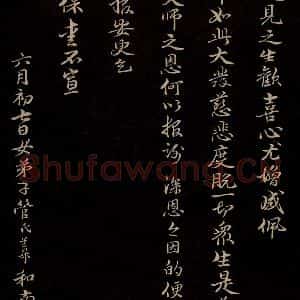 見之生歡喜心尤增感佩
如此大發慈悲度脱一切眾生是
大師之恩何以报謝深恩今因的便
报安更乞
保重不宣
六月初日女弟子管氏和南
Shufawang.Cn